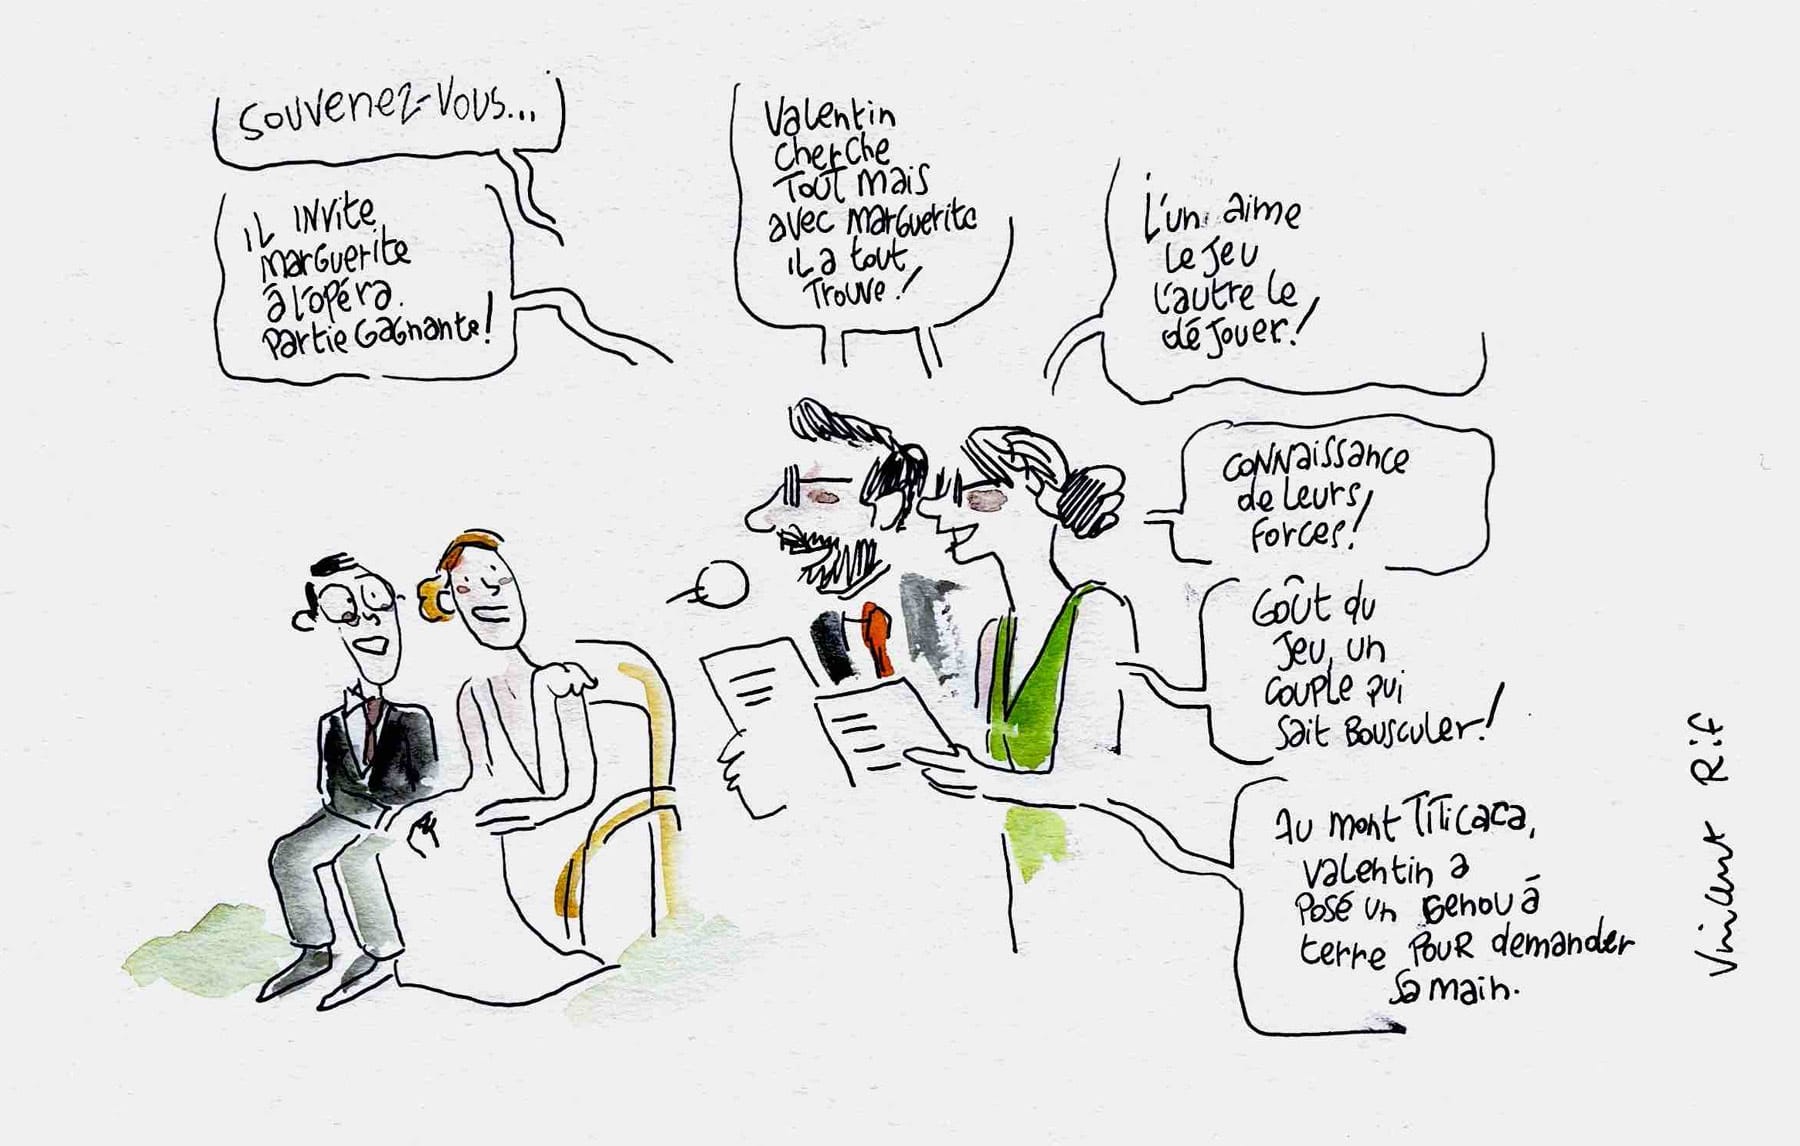 Souvenez-vous...
il invite
Marguerite
à l'opéra.
Partie Gagnante!
Valentin
cherche
Tout mais
avec Marguerite
il a tout
Trouve!
L'un aime
le jeu
l'autre le
déjouer!
Connaissance
de leurs
forces!
Goût du
jeu, un
couple qui
sait bousculer!
Au mont Titicaca,
Valentin a
posé un genou à
terre pour demander
sa main.
Vincent Rif